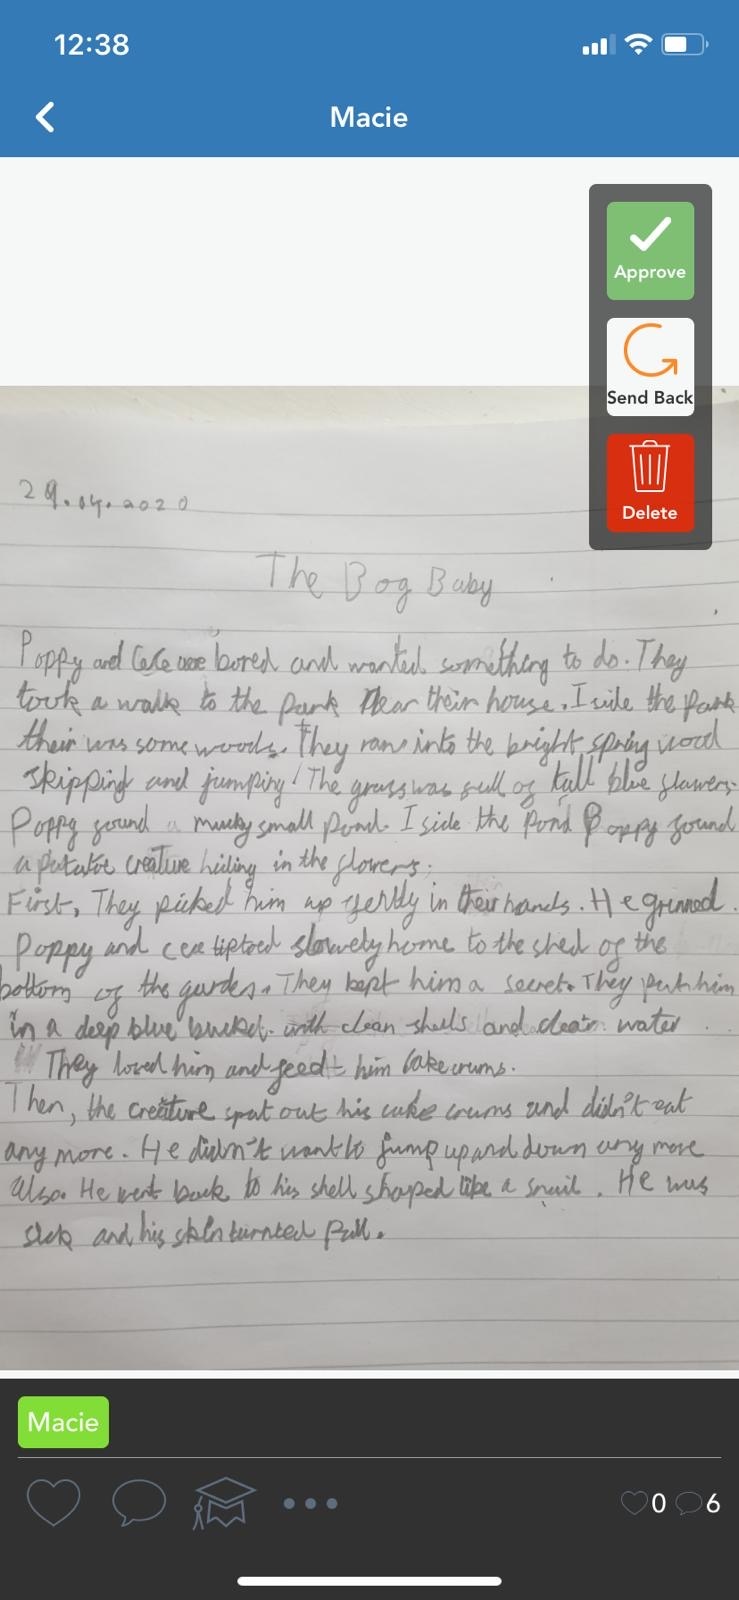 12:38
Macie
Approve
Send Back
Delete
29.04.2020
The Bog Baby
Poppy and CeCe were bored and wanted something to do. They
took a walk to the park near their house. I side the park
their was some woods. They rans into the bright spring wood
skipping and jumping! The grass was full of tall blue flowers.
Poppy found a mucky small pond. I side the pond Poppy found
a creature hiding in the flowers.
First, They picked him up gently in their hands. He grinned.
Poppy and cece tiptoed slowely home to the shed of the
bottom of the garden. They kept him a secret. They put him
in a deep blue bucket. with clean shells and clean water
They loved him and feed him cake crums.
Then, the creature spat out his cake crums and didn't eat
any more. He didn't want to jump up and down any more
also. He went back to his shell shaped like a snail. He was
sick and his skin turnted
Macie
0 6